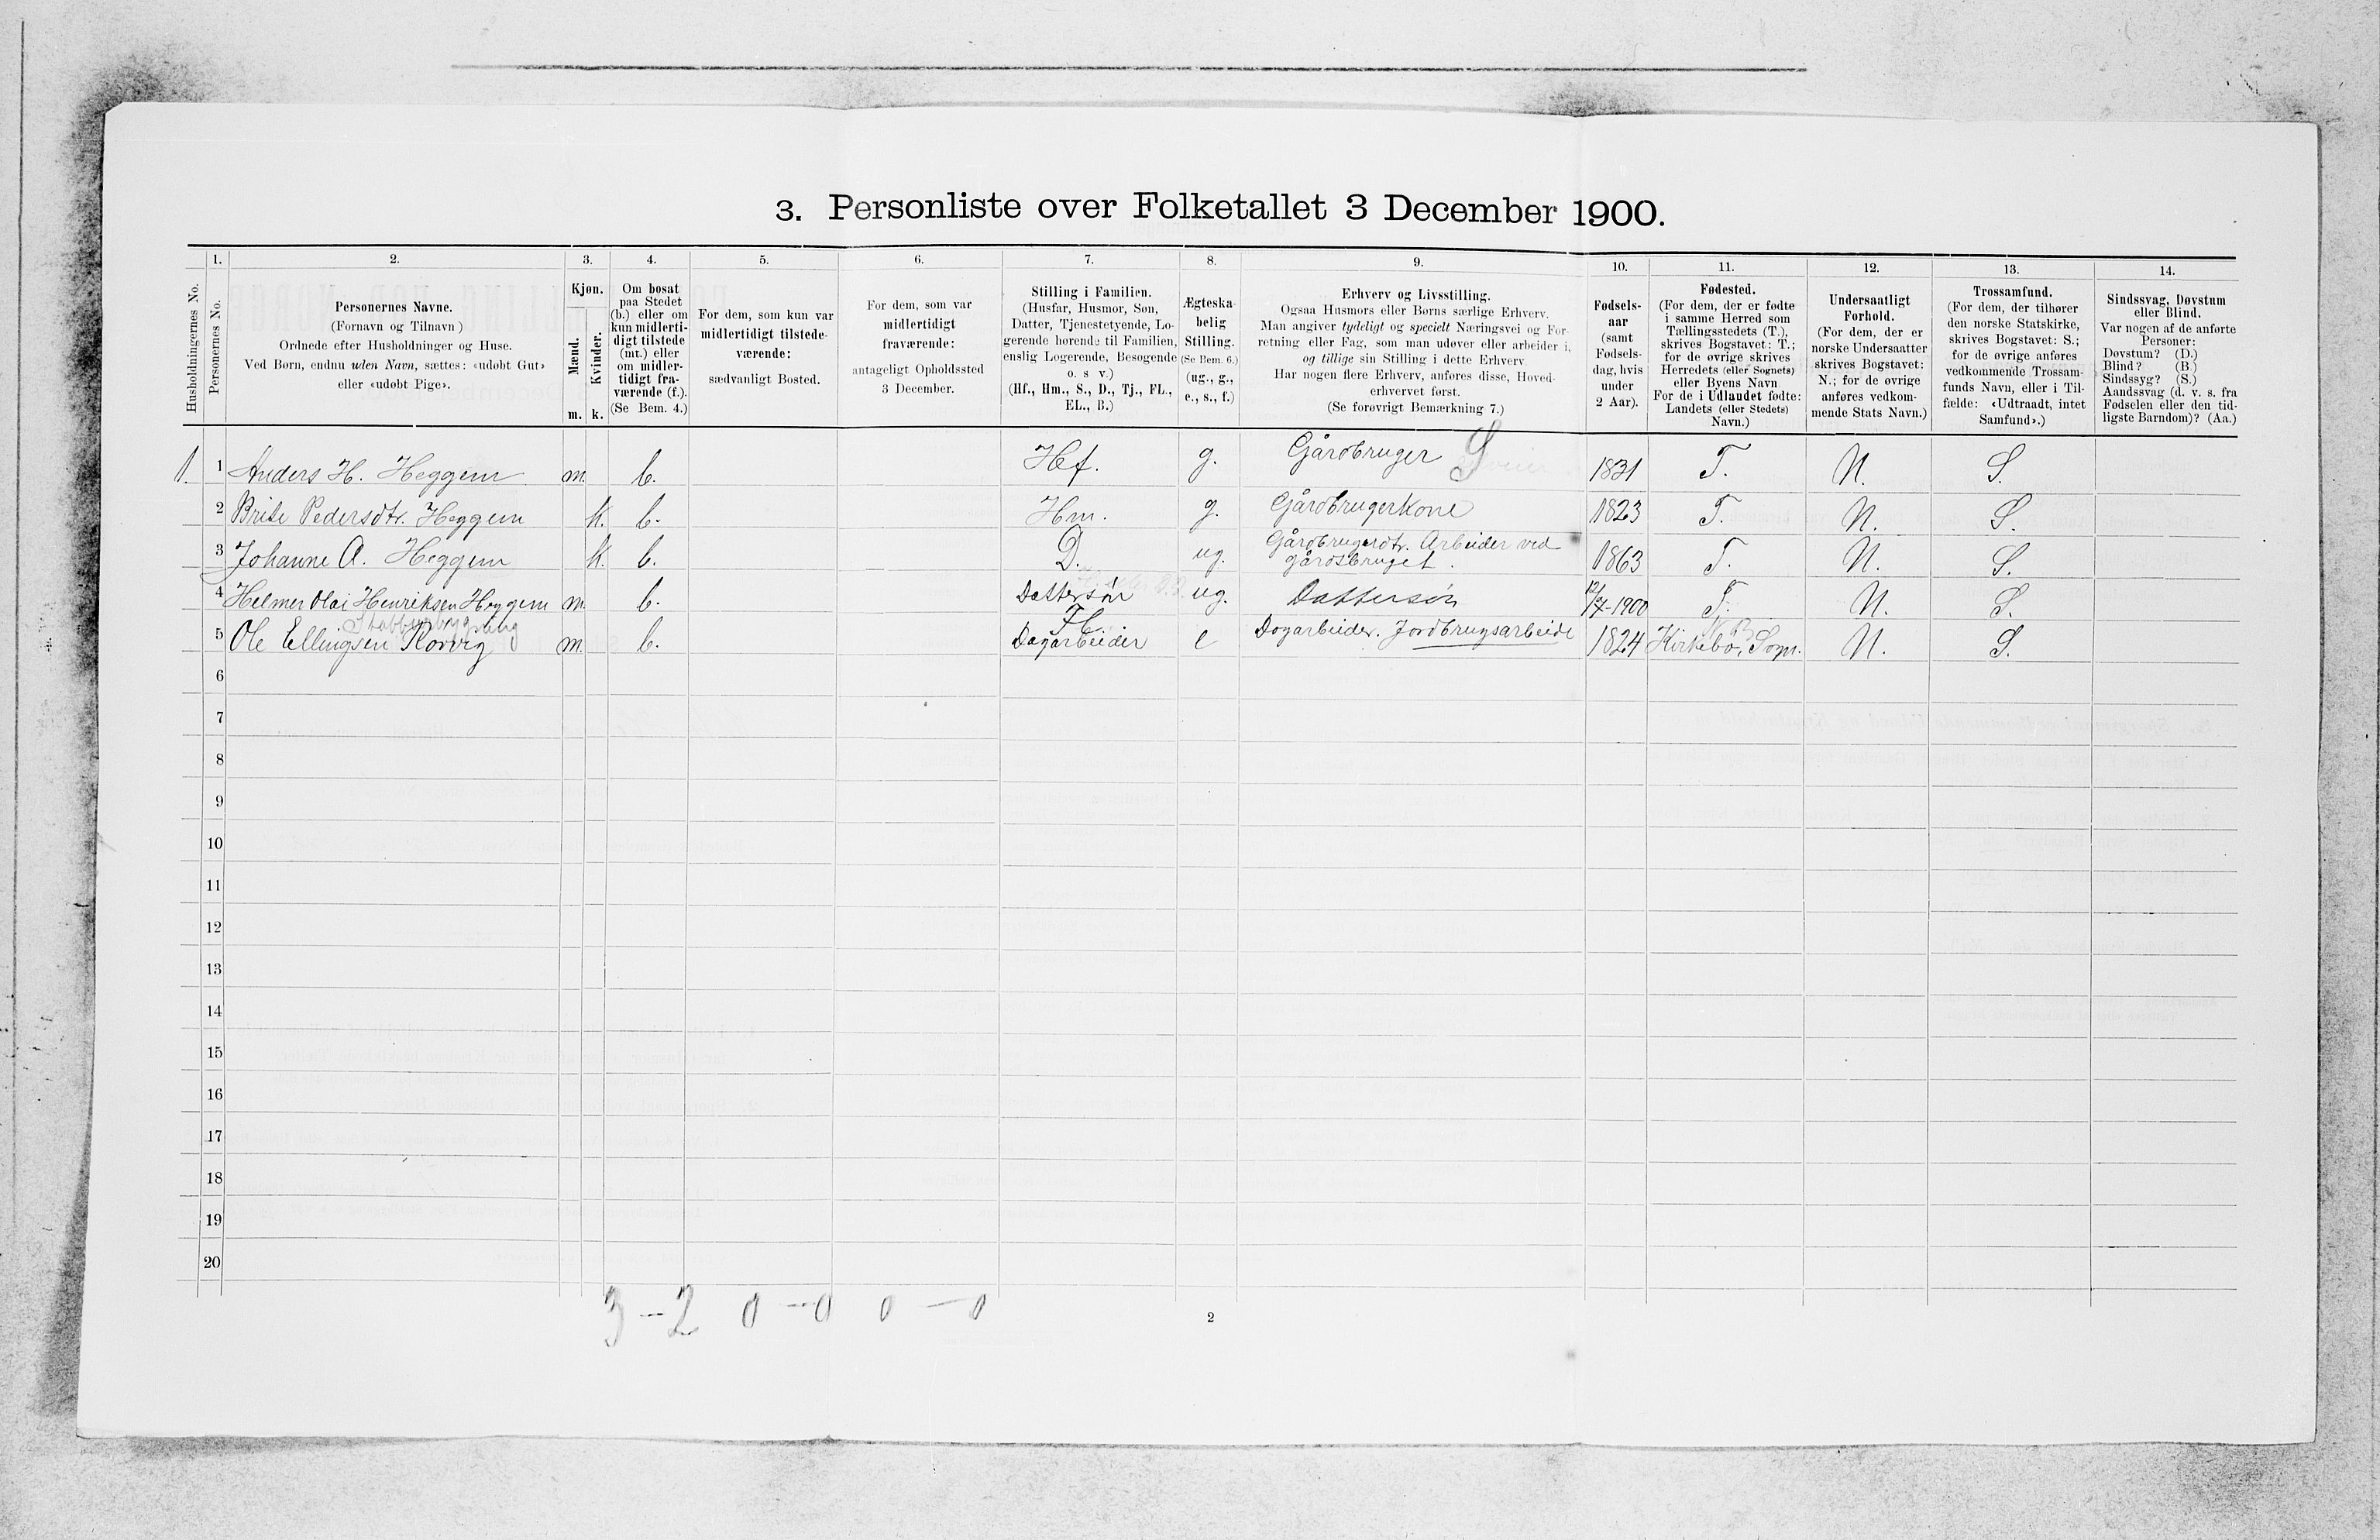 3. Personliste over Folketallet 3 December 1900.
Husholdningernes No.
1.
Personernes No.
2.
Personernes Navne.
(Fornavn og Tilnavn)
Ordnede efter Husholdninger og Huse.
Ved Børn, endnu uden Navn, sættes: «udøbt Gut»
eller «udøbt Pige».
3.
Kjøn.
Mænd.
Kvinder.
m. k.
4.
Om bosat
paa Stedet
(b.) eller om
kun midlerti-
digt tilstede
(mt.) eller
om midler-
tidigt fra-
værende (f.).
(Se Bem. 4.)
5.
For dem, som kun var
midlertidigt tilstede-
værende:
sædvanligt Bosted.
6.
For dem, som var
midlertidigt
fraværende:
antageligt Opholdssted
3 December.
7.
Stilling i Familien.
(Husfar, Husmor, Søn,
Datter, Tjenestetyende, Lo-
gerende hørende til Familien,
enslig Logerende, Besøgende
o. s. v.)
(Hf., Hm., S., D., Tj., FL.,
EL., B.)
8.
Ægteska-
belig
Stilling.
(Se Bem. 6.)
(ug., g.,
e., s., f.)
9.
Erhverv og Livsstilling.
Ogsaa Husmors eller Børns særlige Erhverv.
Man angiver tydeligt og specielt Næringsvei og For-
retning eller Fag, som man udøver eller arbeider i,
og tillige sin Stilling i dette Erhverv.
Har nogen flere Erhverv, anføres disse, Hoved-
erhvervet først.
(Se forøvrigt Bemærkning 7.)
10.
Fødsels-
aar
(samt
Fødsels-
dag, hvis
under
2 Aar).
11.
Fødested.
(For dem, der er fødte
i samme Herred som
Tællingsstedets (T.),
skrives Bogstavet: T.;
for de øvrige skrives
Herredets (eller Sognets)
eller Byens Navn.
For de i Udlandet fødte:
Landets (eller Stedets)
Navn.)
12.
Undersaatligt
Forhold.
(For dem, der er
norske Undersaatter
skrives Bogstavet:
N.; for de øvrige
anføres vedkom-
mende Stats Navn.)
13.
Trossamfund.
(For dem, der tilhører
den norske Statskirke,
skrives Bogstavet: S.;
for de øvrige anføres
vedkommende Trossam-
funds Navn, eller i Til-
fælde: «Udtraadt, intet
Samfund».)
14.
Sindssvag, Døvstum
eller Blind.
Var nogen af de anførte
Personer:
Døvstum? (D.)
Blind? (B.)
Sindssyg? (S.)
Aandssvag (d. v. s. fra
Fødselen eller den tid-
ligste Barndom)? (Aa.)
1. 1 Anders H. Heggem m. b. Hf. g. Gårdbruger S 1831 T. N. S.
2 Brite Pedersdtr. Heggem k. b. Hm. g. Gårdbrugerkone 1823 T. N. S.
3 Johanne A. Heggem k. b. D. ug. Gårdbrugerdtr. Arbeider ved
gårdsbruget. 1863 T. N. S.
4 Helmer Olai Henriksen Heggem m. b. Dattersøn ug. Dattersøn 12/7-1900 T. N. S.
5 Ole Ellingsen Rorvig m. b. FL Dagarbeider e Dagarbeider. Jordbrugsarbeide 1824 Kirkebø, Sogn. N. S.
6
7
8
9
10
11
12
13
14
15
16
17
18
19
20
3-2 0-0 0-0
2